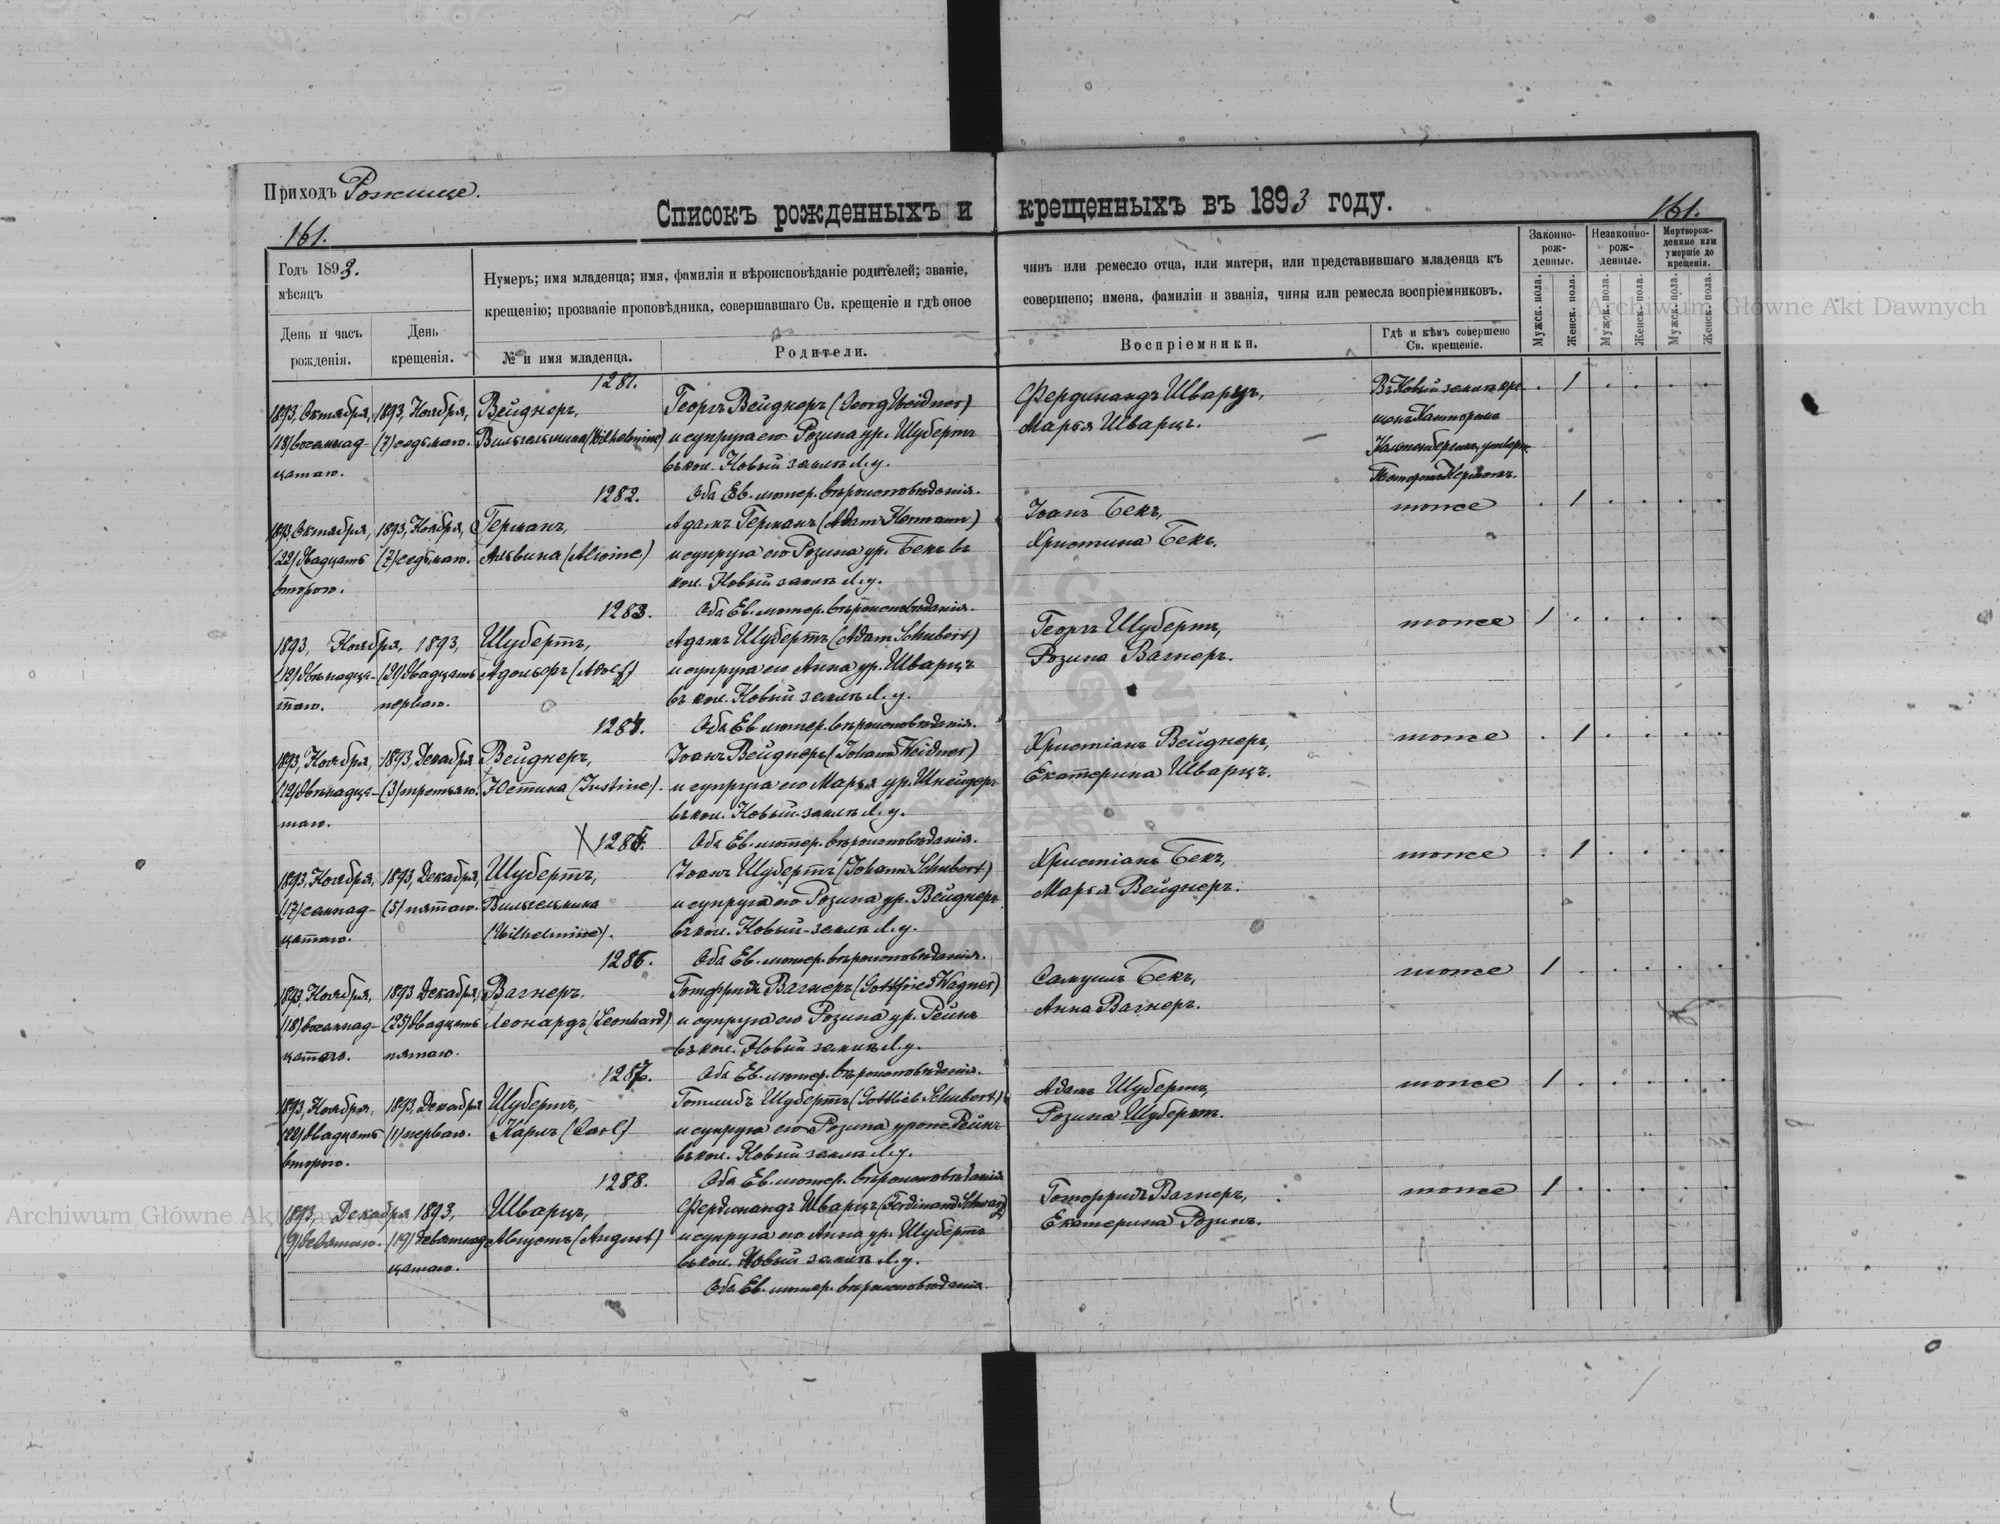 Приходъ Рожище.
Списокъ рожденныхъ и крещенныхъ въ 1893 году.
161.
161.
Годъ 1893.
мѣсяцъ
День и часъ рожденія.
День крещенія.
Нумеръ; имя младенца; имя, фамилія и вѣроисповѣданіе родителей; званіе,
крещенію; прозваніе проповѣдника, совершавшаго Св. крещеніе и гдѣ оное
№ и имя младенца.
Родители.
чинъ или ремесло отца, или матери, или представившаго младенца къ
совершено; имена, фамиліи и званія, чины или ремесла воспріемниковъ.
Воспріемники.
Гдѣ и кѣмъ совершено
Св. крещеніе.
Законно-
рож-
денные.
Незаконно-
рож-
денные.
Мертворож-
денные или
умершіе до
крещенія.
Мужск. пола.
Женск. пола.
Мужск. пола.
Женск. пола.
Мужск. пола.
Женск. пола.
1281.
1893, Октября,
(18) восемнад-
цатаго.
1893, Ноября,
(7) седьмаго.
Вейднеръ,
Вильгельмина (Wilhelmine)
Георгъ Вейднеръ (Georg Weidner)
и супруга его Розина ур. Шубертъ
въ кол. Новый земля Л. у.
Оба Ев.-лютер. вѣроисповѣданія.
Фердинандъ Шварцъ,
Марья Шварцъ.
1
1282.
1893, Октября,
(22) двадцать
второго.
1893, Ноября,
(7) седьмаго.
Германъ,
Альвина (Alwine)
Адамъ Германъ (Adam Hermann)
и супруга его Розина ур. Бекъ въ
кол. Новый земля Л. у.
Оба Ев.-лютер. вѣроисповѣданія.
Іоанъ Бекъ,
Христина Бекъ.
тоже
1
1283.
1893, Ноября,
(12) двѣнадца-
таго.
1893,
(21) двадцать
перваго.
Шубертъ,
Адольфъ (Adolf)
Адамъ Шубертъ (Adam Schubert)
и супруга его Анна ур. Шварцъ
въ кол. Новый земля Л. у.
Оба Ев.-лютер. вѣроисповѣданія.
Георгъ Шубертъ,
Розина Вагнеръ.
тоже
1
1284.
1893, Ноября,
(12) двѣнадца-
таго.
1893, Декабря
(3) третьяго.
Вейднеръ,
Юстина (Justine).
Іоанъ Вейднеръ (Johann Weidner)
и супруга его Марья ур. Шнейдеръ
въ кол. Новый-земля Л. у.
Оба Ев.-лютер. вѣроисповѣданія.
Христіанъ Вейднеръ,
Екатерина Шварцъ.
тоже
1
X 1285.
1893, Ноября,
(17) семнад-
цатаго.
1893, Декабря,
(5) пятаго.
Шубертъ,
Вильгельмина
(Wilhelmine).
Іоанъ Шубертъ (Johann Schubert)
и супруга его Розина ур. Вейднеръ
въ кол. Новый-земля Л. у.
Оба Ев.-лютер. вѣроисповѣданія.
Христіанъ Бекъ,
Марья Вейднеръ.
тоже
1
1286.
1893, Ноября,
(18) восемнад-
цатаго.
1893 Декабря,
(25) двадцать
пятаго.
Вагнеръ,
Леонардъ (Leonhard)
Готфридъ Вагнеръ (Gottfried Wagner)
и супруга его Розина ур. Рейнъ
въ кол. Новый земля Л. у.
Оба Ев.-лютер. вѣроисповѣданія.
Самуилъ Бекъ,
Анна Вагнеръ.
тоже
1
1287.
1893, Ноября,
(22) двадцать
второго.
1893, Декабря
(1) перваго.
Шубертъ,
Карлъ (Carl)
Готлибъ Шубертъ (Gottlieb Schubert)
и супруга его Розина урож. Рейнъ
въ кол. Новый земля Л. у.
Оба Ев.-лютер. вѣроисповѣданія
Адамъ Шубертъ,
Розина Шубертъ.
тоже
1
1288.
1893, Декабря
(9) девятаго.
1893,
(19) девятнад-
цатаго.
Шварцъ,
Августъ (August)
Фердинандъ Шварцъ (Ferdinand Schwarz)
и супруга его Анна ур. Шубертъ
въ кол. Новый земля Л. у.
Оба Ев.-лютер. вѣроисповѣданія
Готфридъ Вагнеръ,
Екатерина Розинъ.
тоже
1
Archiwum Główne Akt Dawnych
Archiwum Główne Akt Dawnych